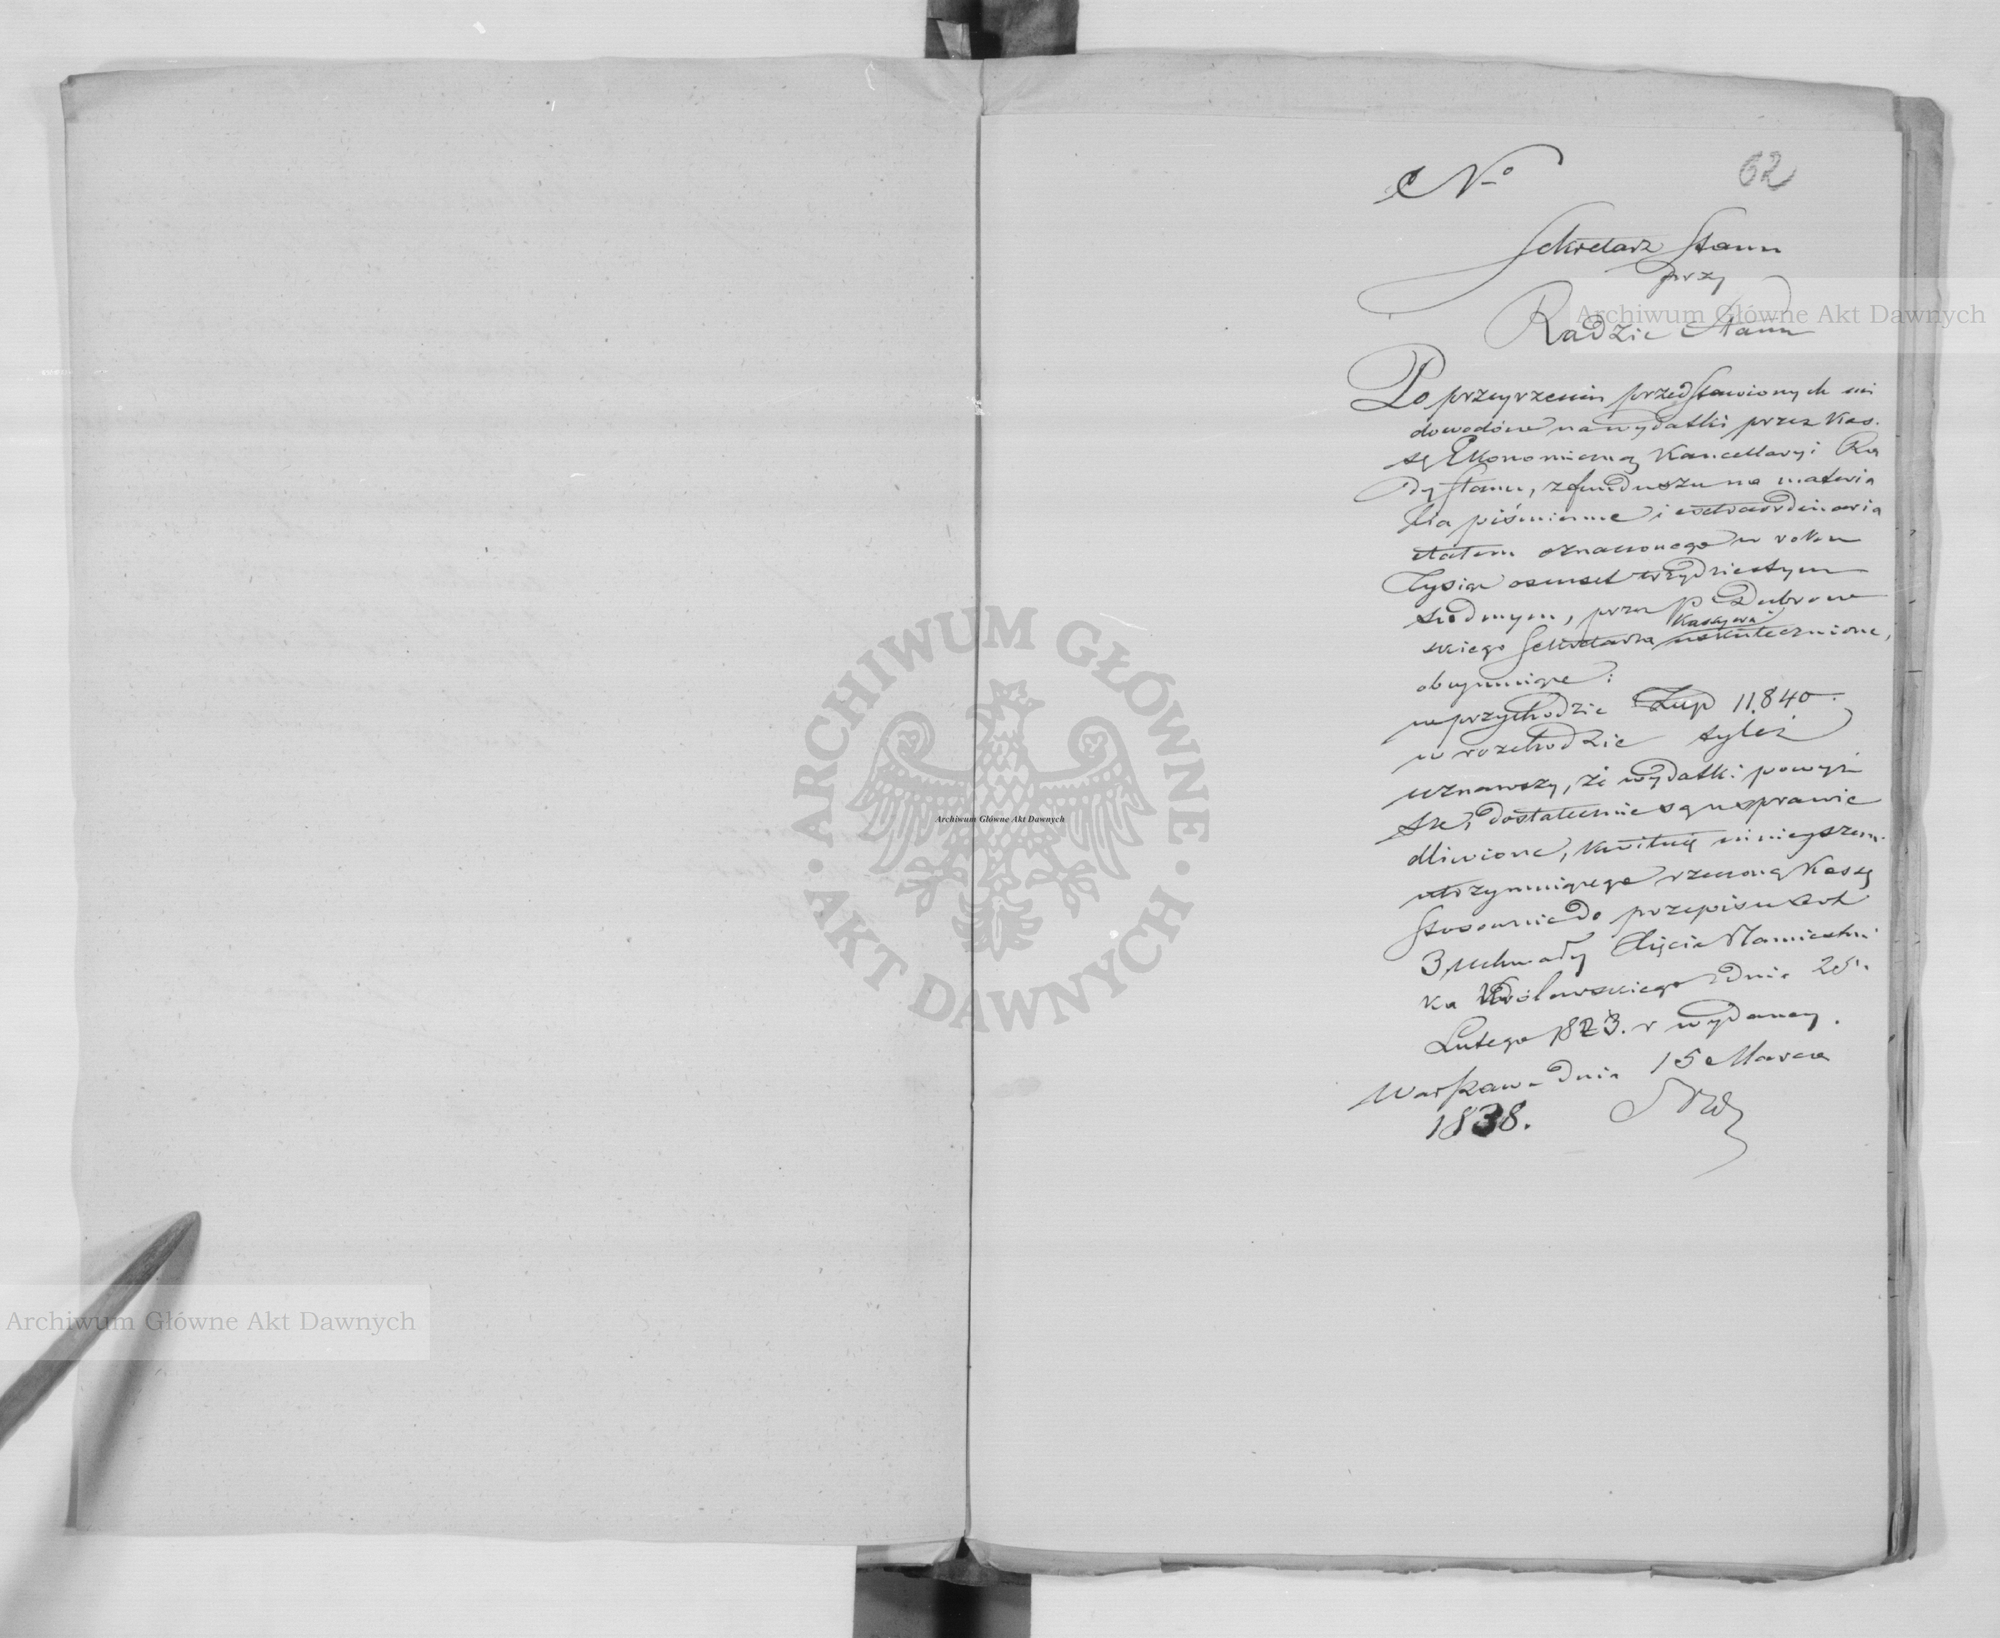 No
62
Sekretarz Stanu
przy
Radzie Stanu
Po przeyrzeniu przedstawionych mi
dowodów na wydatki przez Kas.
sę Ekonomiczną Kancellaryi Ra
dy Stanu, z funduszu na materia
lia piśmienne i extraordinaria
etatem oznaczonego w roku
Tysiąc osmset trzydziestym
siodmym, przez P. Dubrow
skiego Sekretarza Kassyera uskutecznione,
obeymuiące:
w przychodzie Złłp 11.840.
w rozchodzie tyleż
uznawszy, że wydatki powyż
sze, dostatecznie są usprawie
dliwione, kwituię ninieyszem
utrzymuiącego rzeczoną Kassę
Stosownie do przepisu art
3 uchwały Xięcia Namiestni
ka Królewskiego z dnia 25.
Lutego 1823. r wydaney.
Warszawa dnia 15 Marca
1838.
Archiwum Główne Akt Dawnych
Archiwum Główne Akt Dawnych
ARCHIWUM GŁÓWNE · AKT DAWNYCH ·
Archiwum Główne Akt Dawnych